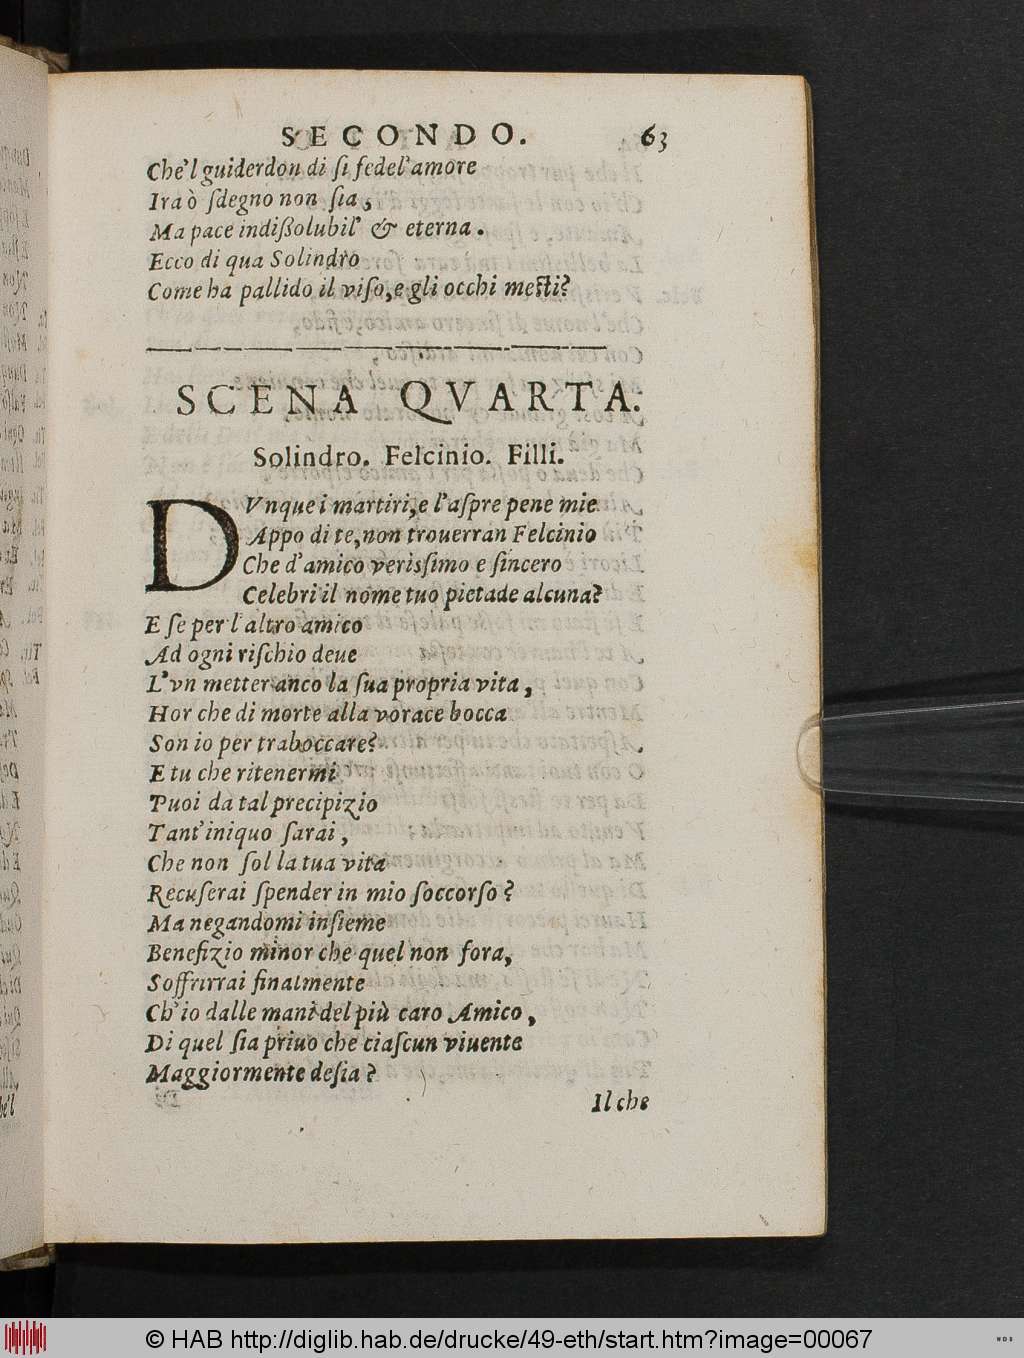 SECONDO. 63
Che'l guiderdon di sì fedel'amore
Ira ò ſdegno non ſia,
Ma pace indiſſolubil' & eterna.
Ecco di qua Solindro
Come ha pallido il viſo, e gli occhi meſti?
SCENA QVARTA.
Solindro. Felcinio. Filli.
DVnque i martiri, e l'aſpre pene mie
Appo di te, non trouerran Felcinio
Che d'amico veriſſimo e ſincero
Celebri il nome tuo pietade alcuna?
E ſe per l'altro amico
Ad ogni riſchio deue
L'vn metter anco la ſua propria vita,
Hor che di morte alla vorace bocca
Son io per traboccare?
E tu che ritenermi
Puoi da tal precipizio
Tant'iniquo ſarai,
Che non ſol la tua vita
Recuſerai ſpender in mio ſoccorſo?
Ma negandomi inſieme
Benefizio minor che quel non fora,
Soffrirrai finalmente
Ch'io dalle mani del più caro Amico,
Di quel ſia priuo che ciaſcun viuente
Maggiormente deſia?
Il che
© HAB http://diglib.hab.de/drucke/49-eth/start.htm?image=00067